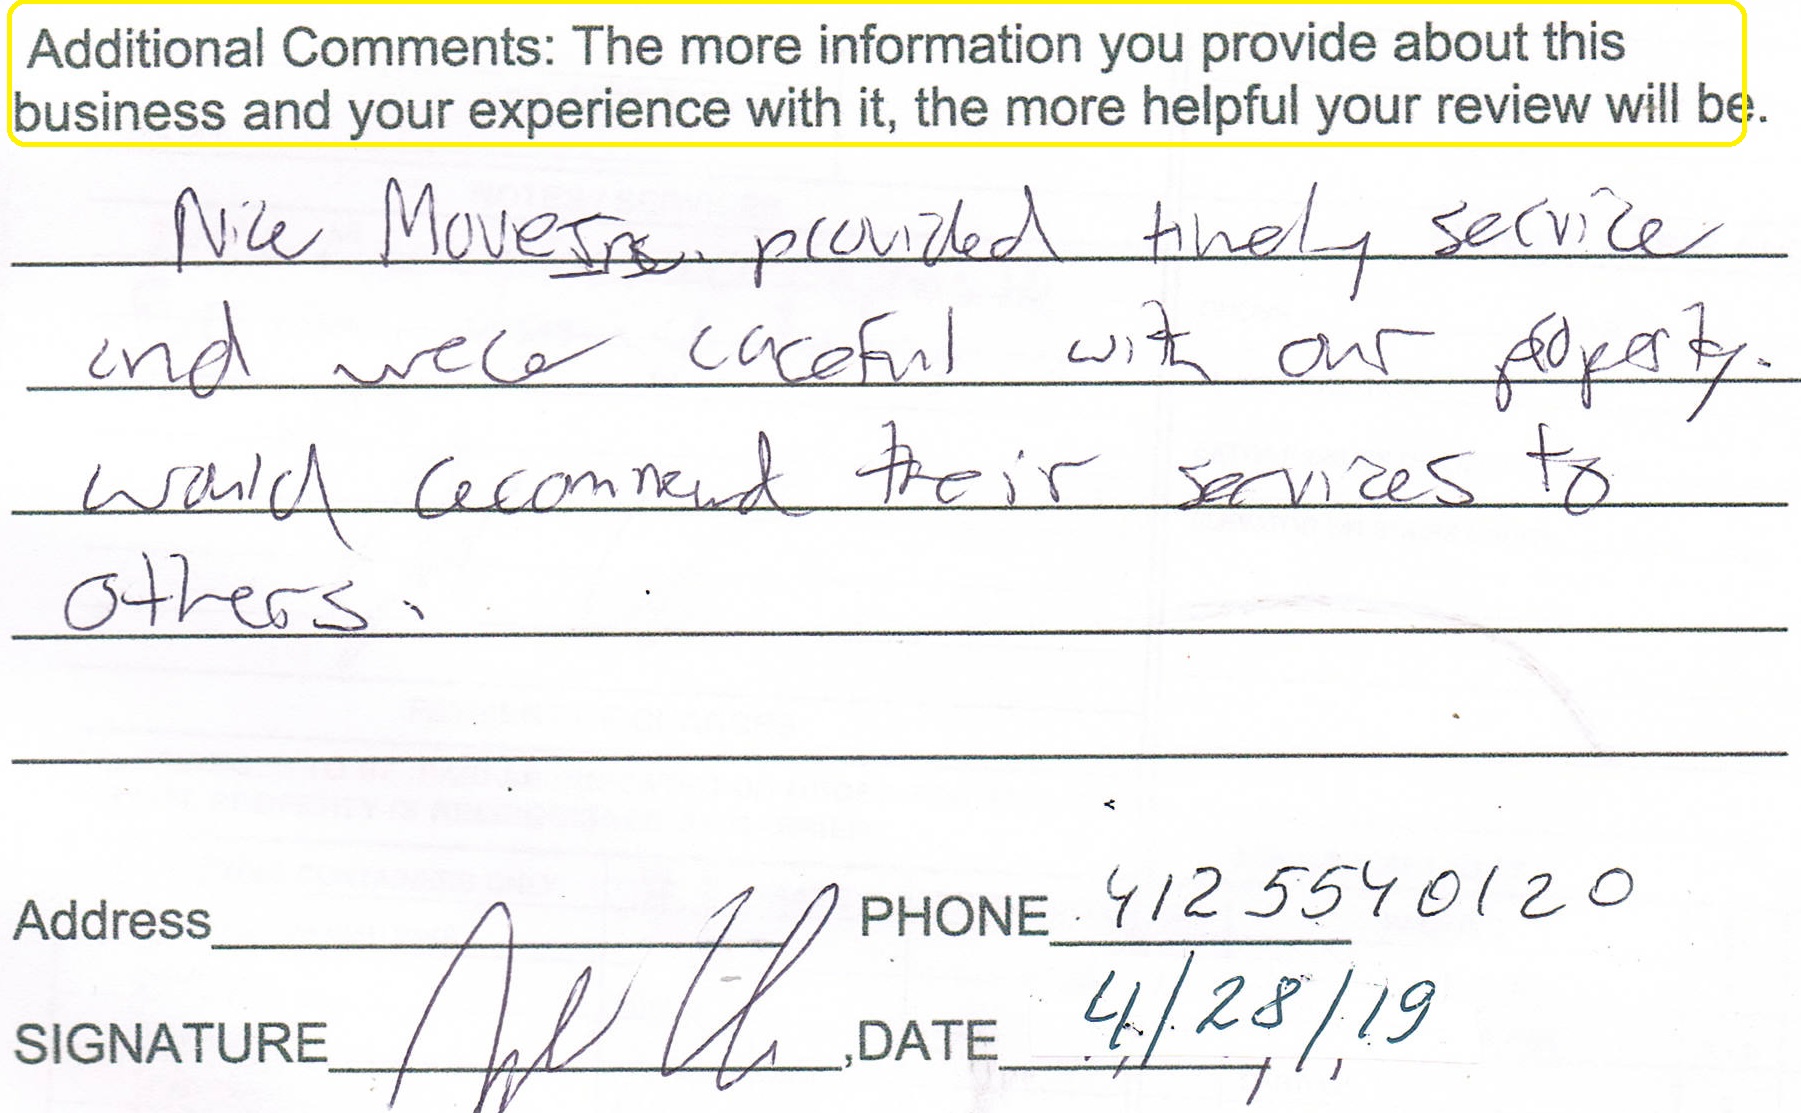 Additional Comments: The more information you provide about this
business and your experience with it, the more helpful your review will be.
Nice Move Inc. provided timely service
and were careful with our property.
would recommend their services to
others.
Address PHONE 412 554 0120
SIGNATURE ,DATE 4/28/19